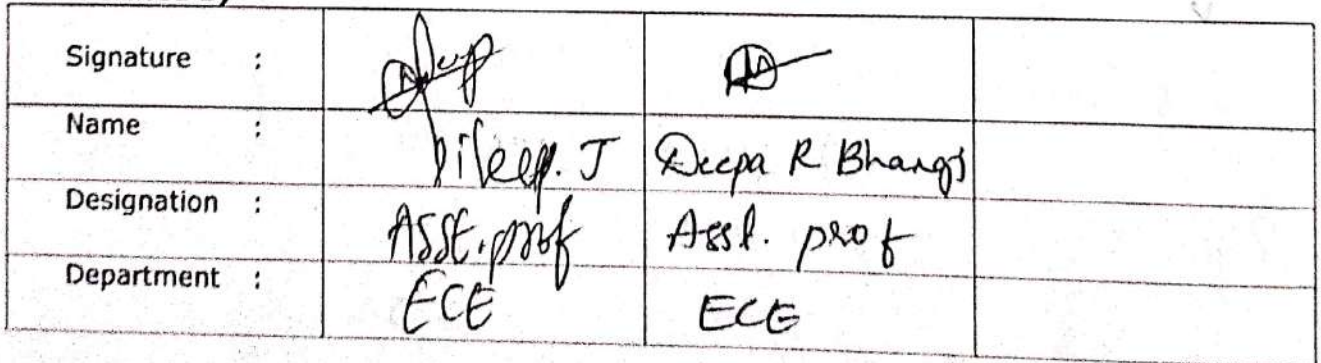 Signature :
Name : Dileep. J Deepa R Bhangi
Designation : Asst. prof Asst. prof
Department : ECE ECE